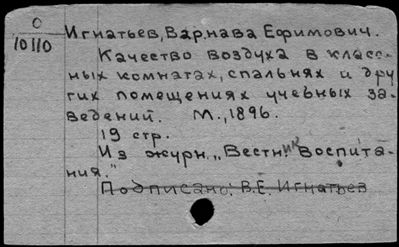 О
10110
Игнатьев, Варнава Ефимович.
Качество воздуха в класс-
ных комнатах, спальнях и дру
гих помещениях учебных за-
ведений. М., 1896.
19 стр.
Из журн. „Вестник Воспита-
ния."
Подписано: В.Е. Игнатьев